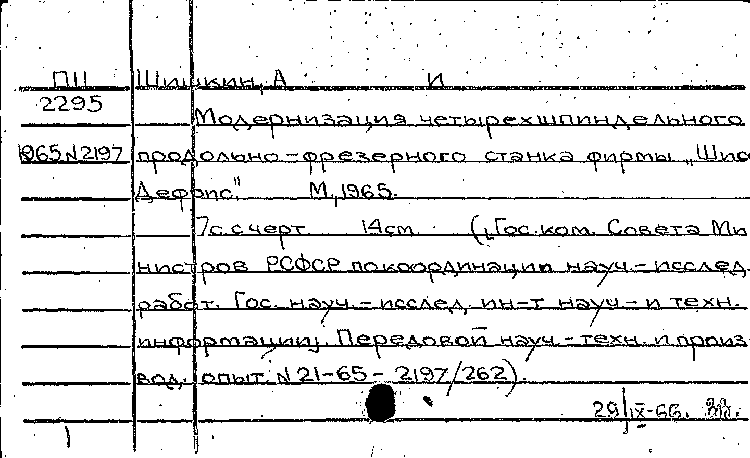 ПП Шишкин, А И
2295
Модернизация четырехшпиндельного
1965 N2197 продольно-фрезерного станка фирмы „Шис
Дефрис." М., 1965.
7с. с черт. 14см. (Гос. ком. Совета Ми
нистров РСФСР по координации науч.-исслед.
работ. Гос. науч.-исслед. ин-т науч.-и техн.
информации. Передовой науч.-техн. и произ
вод. опыт. N21-65-2197/262).
29/IX-66.